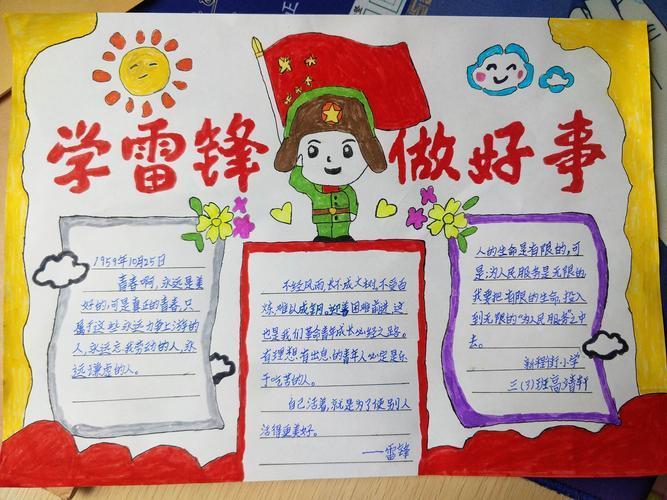 学雷锋 做好事
1959年10月25日
青春啊,永远是美
好的,可是真正的青春,只
属于这些永远力争上游的
人,永远忘我劳动的人,永
远谦虚的人。
不经风雨,长不成大树,不受百
炼,难以成钢。迎着困难前进,这
也是我们革命青年成长必经之路。
有理想有出息的青年人必定是乐
于吃苦的人。
自己活着,就是为了使别人
活得更美好。
——雷锋
人的生命是有限的,可
是,为人民服务是无限的,
我要把有限的生命,投入
到无限的“为人民服务”之中
去。
新程街小学
三(3)班高靖轩